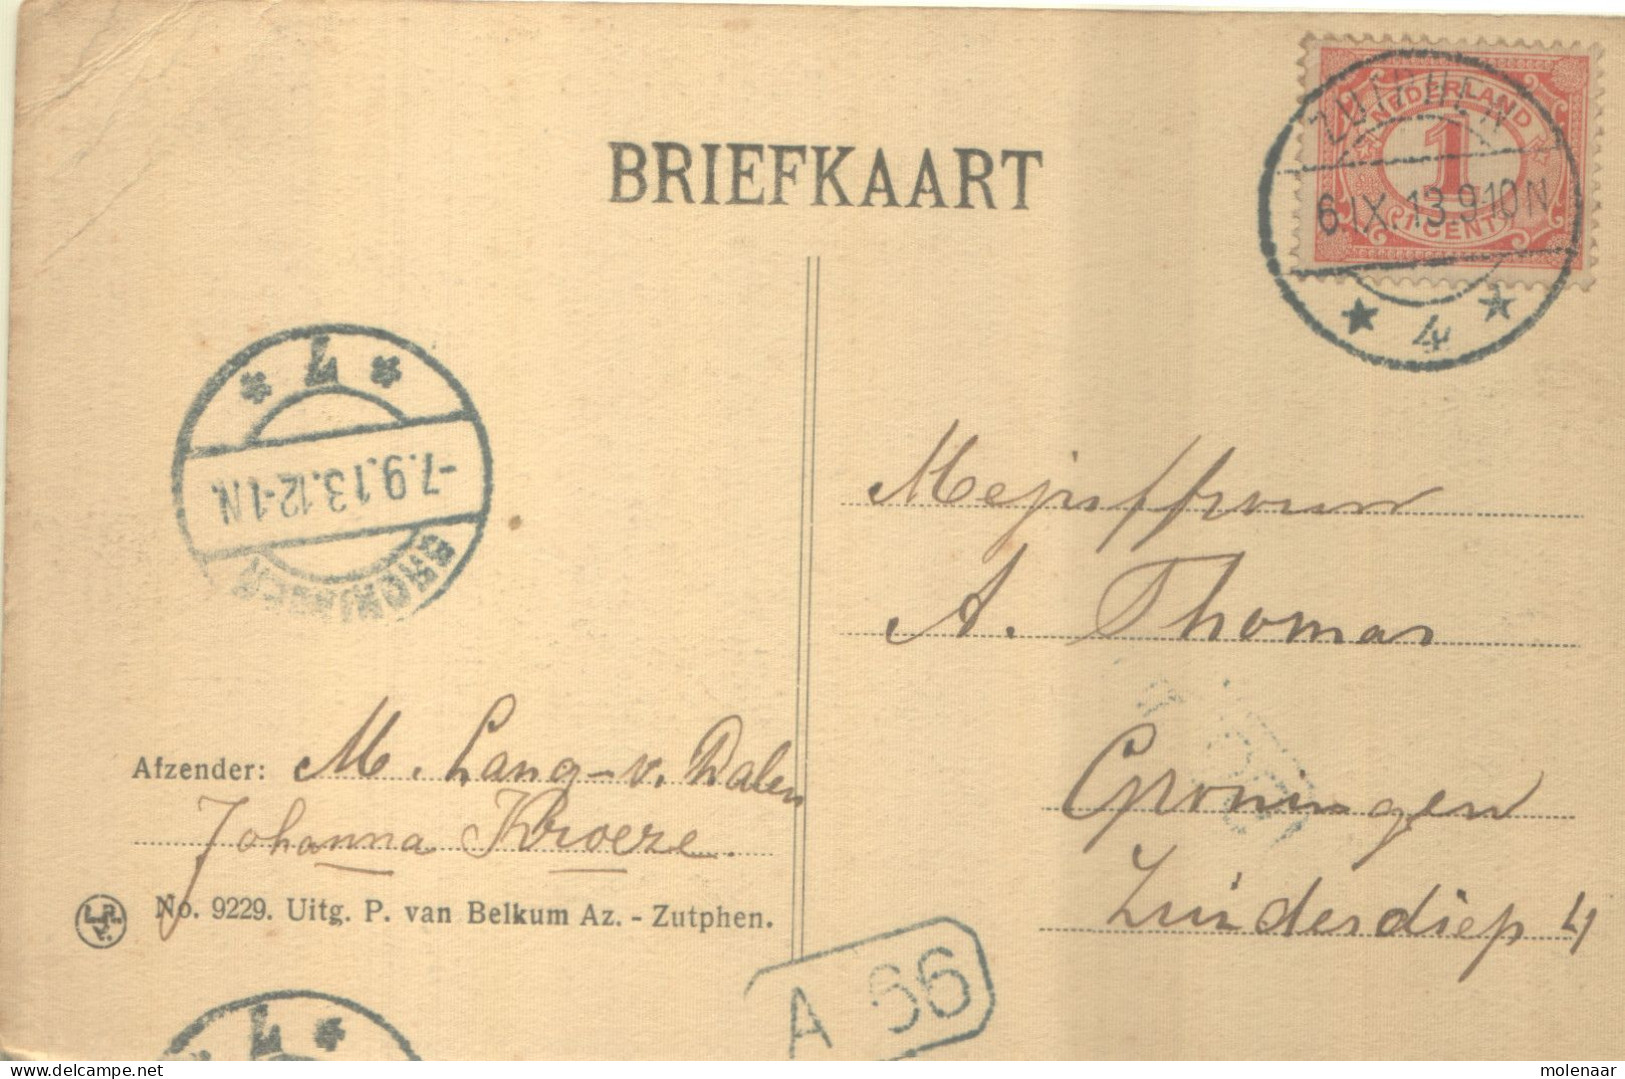 BRIEFKAART
ZUTPHEN
NEDERLAND
1
1 CENT
6.IX.13.9-10N
4
L
-7.9.13.12-1N.
GRONINGEN
Mejuffrouw
A. Thomas
Groningen
Zuiderdiep 4
Afzender: M. Lang-v. Dalen
Johanna Kroeze.
No. 9229. Uitg. P. van Belkum Az. - Zutphen.
A 66
L
molenaar